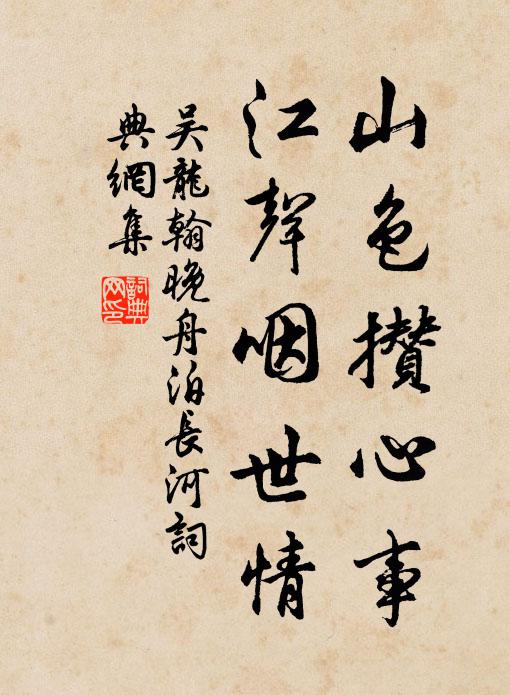 山色攅心事
江聲咽世情
吴龍翰晚舟泊長河詞
典網集
詞典
网印